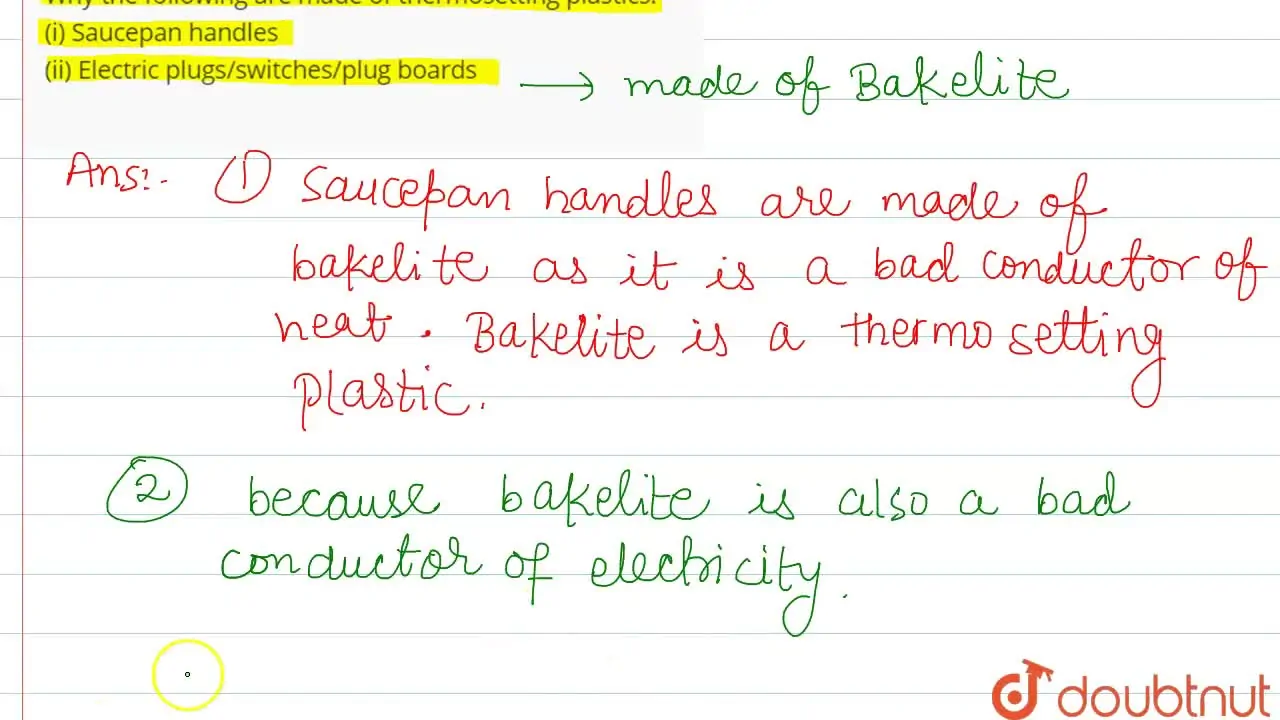 Why the following are made of thermosetting plastics.
(i) Saucepan handles
(ii) Electric plugs/switches/plug boards → made of Bakelite
Ans:- ① Saucepan handles are made of
bakelite as it is a bad conductor of
heat. Bakelite is a thermosetting
plastic.
② because bakelite is also a bad
conductor of electricity.
doubtnut